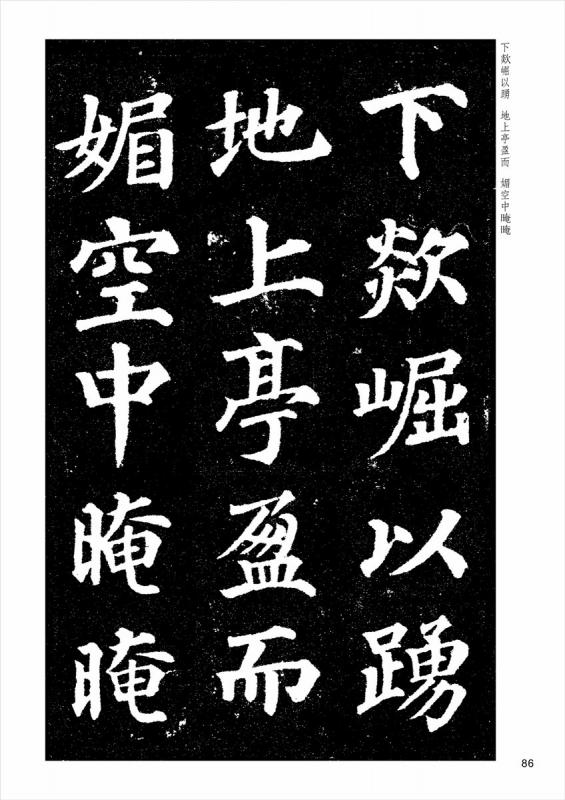 下欻崛以踴
地上亭盈而
媚空中晻晻
下欻崛以踴 地上亭盈而 媚空中晻晻
86